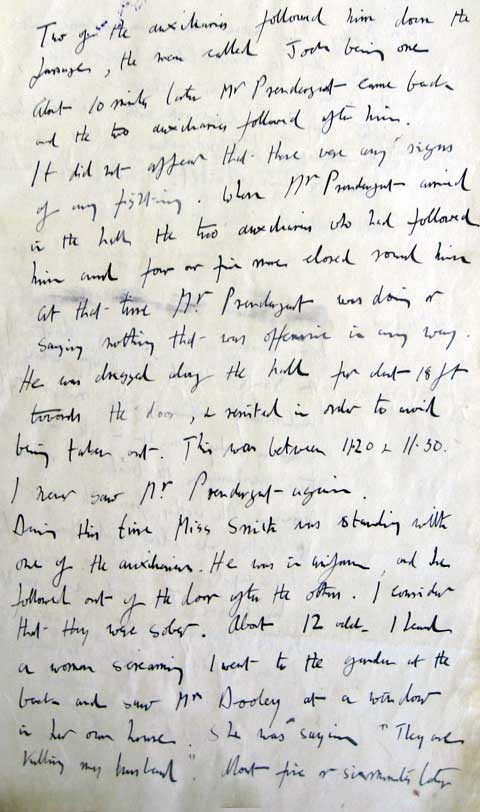 Two of the auxiliaries followed him down the
passage, the man called Jock being one
About 10 minutes later Mr Prendergast came back
and the two auxiliaries followed after him.
It did not appear that there were any signs
of any fighting. When Mr Prendergast arrived
in the hall the two auxiliaries who had followed
him and four or five more closed round him
at that time Mr Prendergast was doing or
saying nothing that was offensive in any way.
He was dragged along the hall for about 18 ft
towards the door, & resisted in order to avoid
being taken out. This was between 11.20 & 11.30.
I never saw Mr Prendergast again.
During this time Miss Smith was standing with
one of the auxiliaries. He was in uniform and he
followed out of the door after the others. I consider
that they were sober. About 12 I heard
a woman screaming I went to the garden at the
back and saw Mrs Dooley at a window
in her own house. She was saying "They are
killing my husband". About five or six minutes later